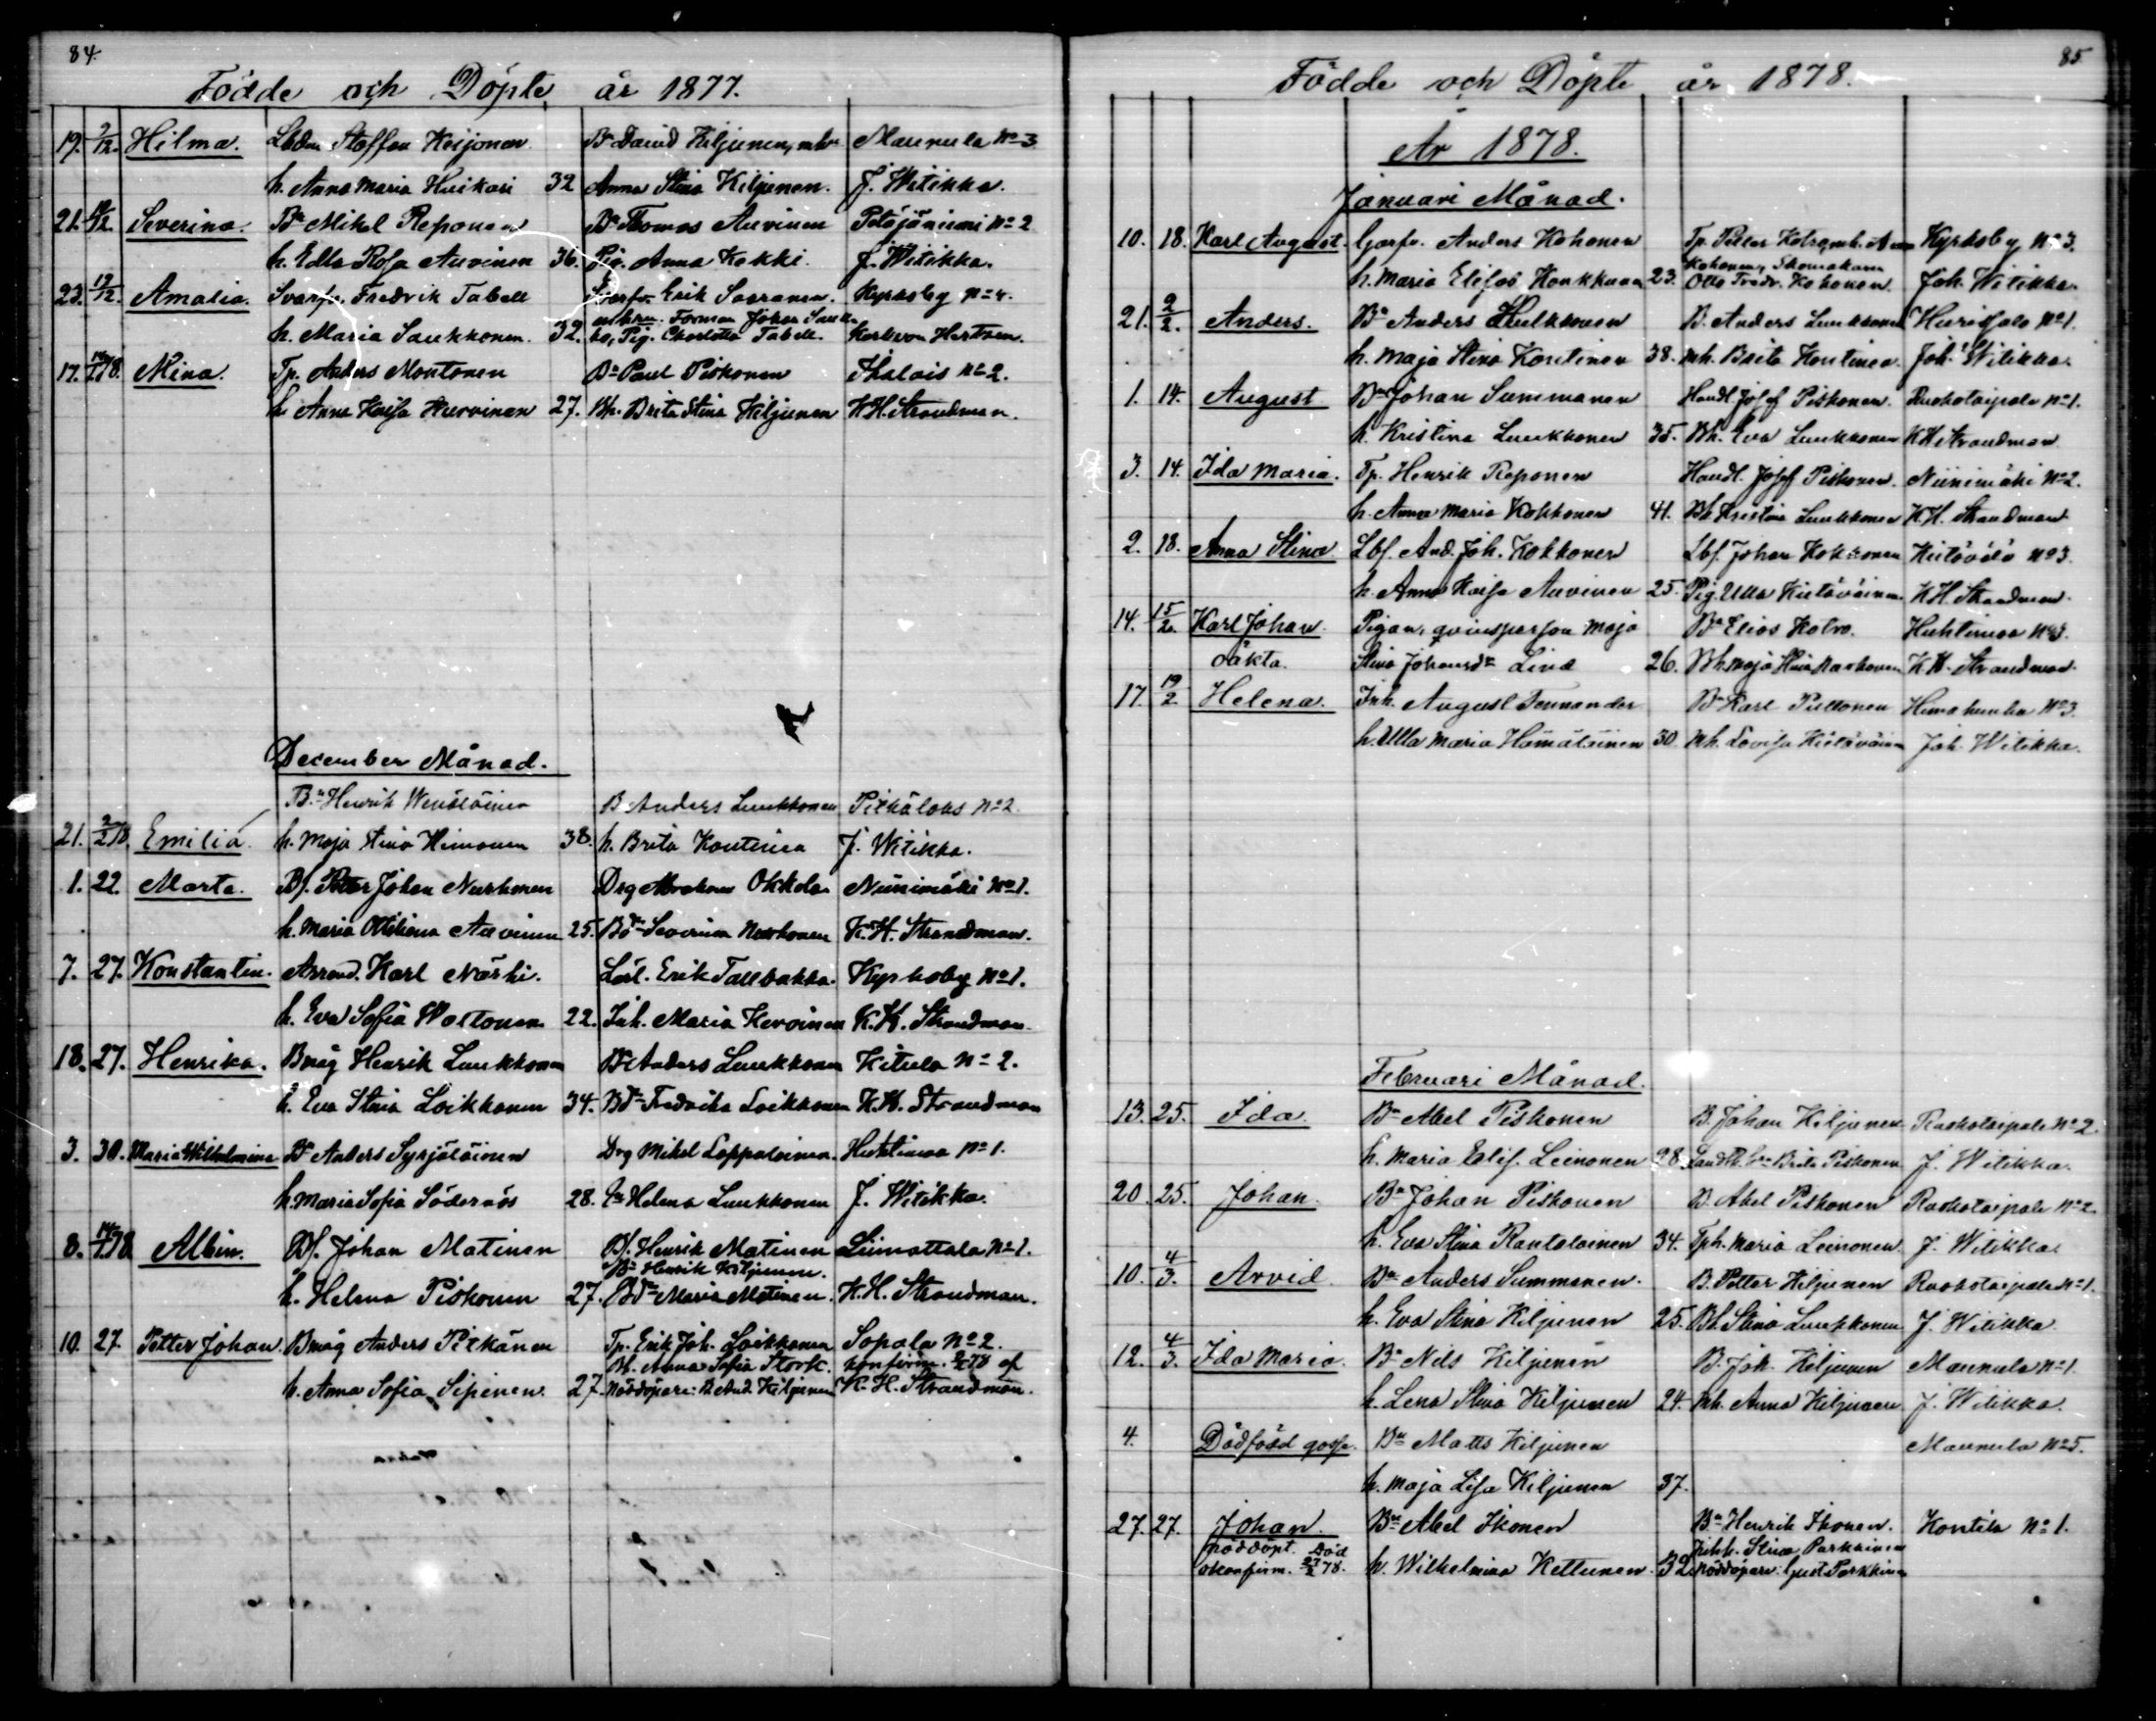 84.
Födde och Döpte år 1877.
19. 9/12. Hilma. Staffan Keijonen Bn David Kiljunen, Maunula No 3
h. Anna Maria Huikari 32 Anna Stina Kiljunen. J. Witikka.
21. Severina. Bn Mikel Reponen Bn Thomas Auvinen Petäjäniemi No 2
h. Edla Rosa Auvinen 36. Pig. Anna Kokki. J. Witikka.
23. Amalia. Svarfv. Fredrik Tabell Svarfv. Erik Saxranen. Kyrkoby No 4.
Forman Johan
h. Maria Saukkonen. 32. Pig. Charlotta Tabell. Karl von Hertzen.
17. Mina. Tp. Anders Montonen Bn Paul Piskonen Ihalais No 2.
h Anna Kaisa Hurvinen 27. Bh. Brita Stina Kiljunen K.H. Strandman.
December Månad.
Bn Henrik B. Anders Luukkonen Pitkälaks No 2.
21. 2/2 78. Emilia h. Maja Stina Himonen 38. h. Brita Kontinen J. Witikka.
1. 22. Marta. Bs. Petter Johan Nurhonen Drg Abraham Okkola Niinimäki No 1.
h. Maria Ottiliana Auvinen 25. Bdr Severina Nurhonen K.H. Strandman.
7. 27. Konstantin. Arrend. Karl Närhi. Erik Tallbakka. Kyrkoby No 1.
h. Eva Sofia Woltonen 22. Inh. Maria Kervinen K.H. Strandman.
18. 27. Henrika. Bmåg Henrik Luukkonen Bn Anders Luukkonen Kitula No 2.
h. Eva Stina Loikkanen 34. Bdr Fredrika Loikkanen K.H. Strandman
3. 30. Maria Wilhelmina Bn Anders Syrjäläinen Drg Mikel Lappalainen. Huhtimaa No 1.
h. Maria Sofia Södernäs 28. Helena Luukkonen J. Witikka.
8. 14/1 78 Albin. Bs. Johan Matinen Bs. Henrik Matinen Liimattala No 1.
Bn Henrik Kiljunen.
h. Helena Piskonen 27. Bdr Maria Matinen. K.H. Strandman.
10. 27. Petter Johan Bmåg Anders Pitkänen Tp. Erik Joh. Loikkanen Sopala No 2.
Bh. Anna Sofia Stark. konfirm. 78 af
h. Anna Sofia Sipinen. 27. Nöddöpare: B. And. Kiljunen K.H. Strandman.
85
Födde och Döpte år 1878.
År 1878.
Januari Månad.
10. 18. Karl August. Garfv. Anders Kohonen Tp. Petter Kyrkoby No 3.
Kohonen, Skomakare
h. Maria Elisab Honkkanen 23. Otto Fredr. Kohonen. Joh. Witikka.
21. 2/2. Anders. Bn Anders Hulkkonen B. Anders Luukkonen No 1.
h. Maja Stina Kontinen 38. mh. Brita Kontinen. Joh. Witikka.
1. 14. August Bn Johan Summanen Handl. Josef Piskonen. Ruokotaipale No 1.
h. Kristina Luukkonen 35. Bh. Eva Luukkonen K.H. Strandman
3. 14. Ida Maria. Tp. Henrik Reponen Handl. Josef Piskonen. Niinimäki No 2.
h. Anna Maria Kokkonen 41. Bh Kristina Luukkonen K.H. Strandman
2. 18. Anna Stina Lbf. And. Joh. Kokkonen Lbf. Johan Kokkonen No 3.
h. Anna Kaisa Auvinen 25. Pig. Ulla K.H. Strandman.
14. 15/2. Karl Johan Pigan, qvinsperson Maja Bn Elias Kolro. Huhtimaa No 3.
oäkta. Stina Johansdr Lind 26. Bh. Maja Stina K.H. Strandman.
17. 19/2 Helena. Inh. August Tennander Bn Karl Pulkonen No 3.
h. Ulla Maria Hämäläinen 30 mh. Lovisa Joh. Witikka.
Februari Månad.
13. 25. Ida. Bn Abel Piskonen B. Johan Kiljunen Ruokotaipale No 2.
h. Maria Elis. Leinonen 28. Brita Piskonen J. Witikka.
20 25. Johan. Bn Johan Piskonen B. Abel Piskonen Ruokotaipale No 2.
h. Eva Stina Rantalainen 34. Tph. Maria Leinonen. J. Witikka.
10. 4/3. Arvid. Bn Anders Summanen. B. Petter Kiljunen Ruokotaipale No 1.
h. Eva Stina Kiljunen 25. Bh Stina Luukkonen J. Witikka.
12. 4/3. Ida Maria. Bn Nils Kiljunen B. Joh. Kiljunen Maunula No 1.
h. Lena Stina Kiljunen 24. mh. Anna Kiljunen J. Witikka.
4. Dödfödd gosse. Bn Matts Kiljunen Maunula No 5.
h. Maja Lisa Kiljunen 37.
27. 27. Johan. Bn Abel Ikonen Bn Henrik Ikonen. Kontila No 1.
nöddöpt. Död Stina Parkkinen
okonfirm. 27/2 78. h. Wilhelmina Kettunen. 32. nöddöpare: Gust. Parkkinen